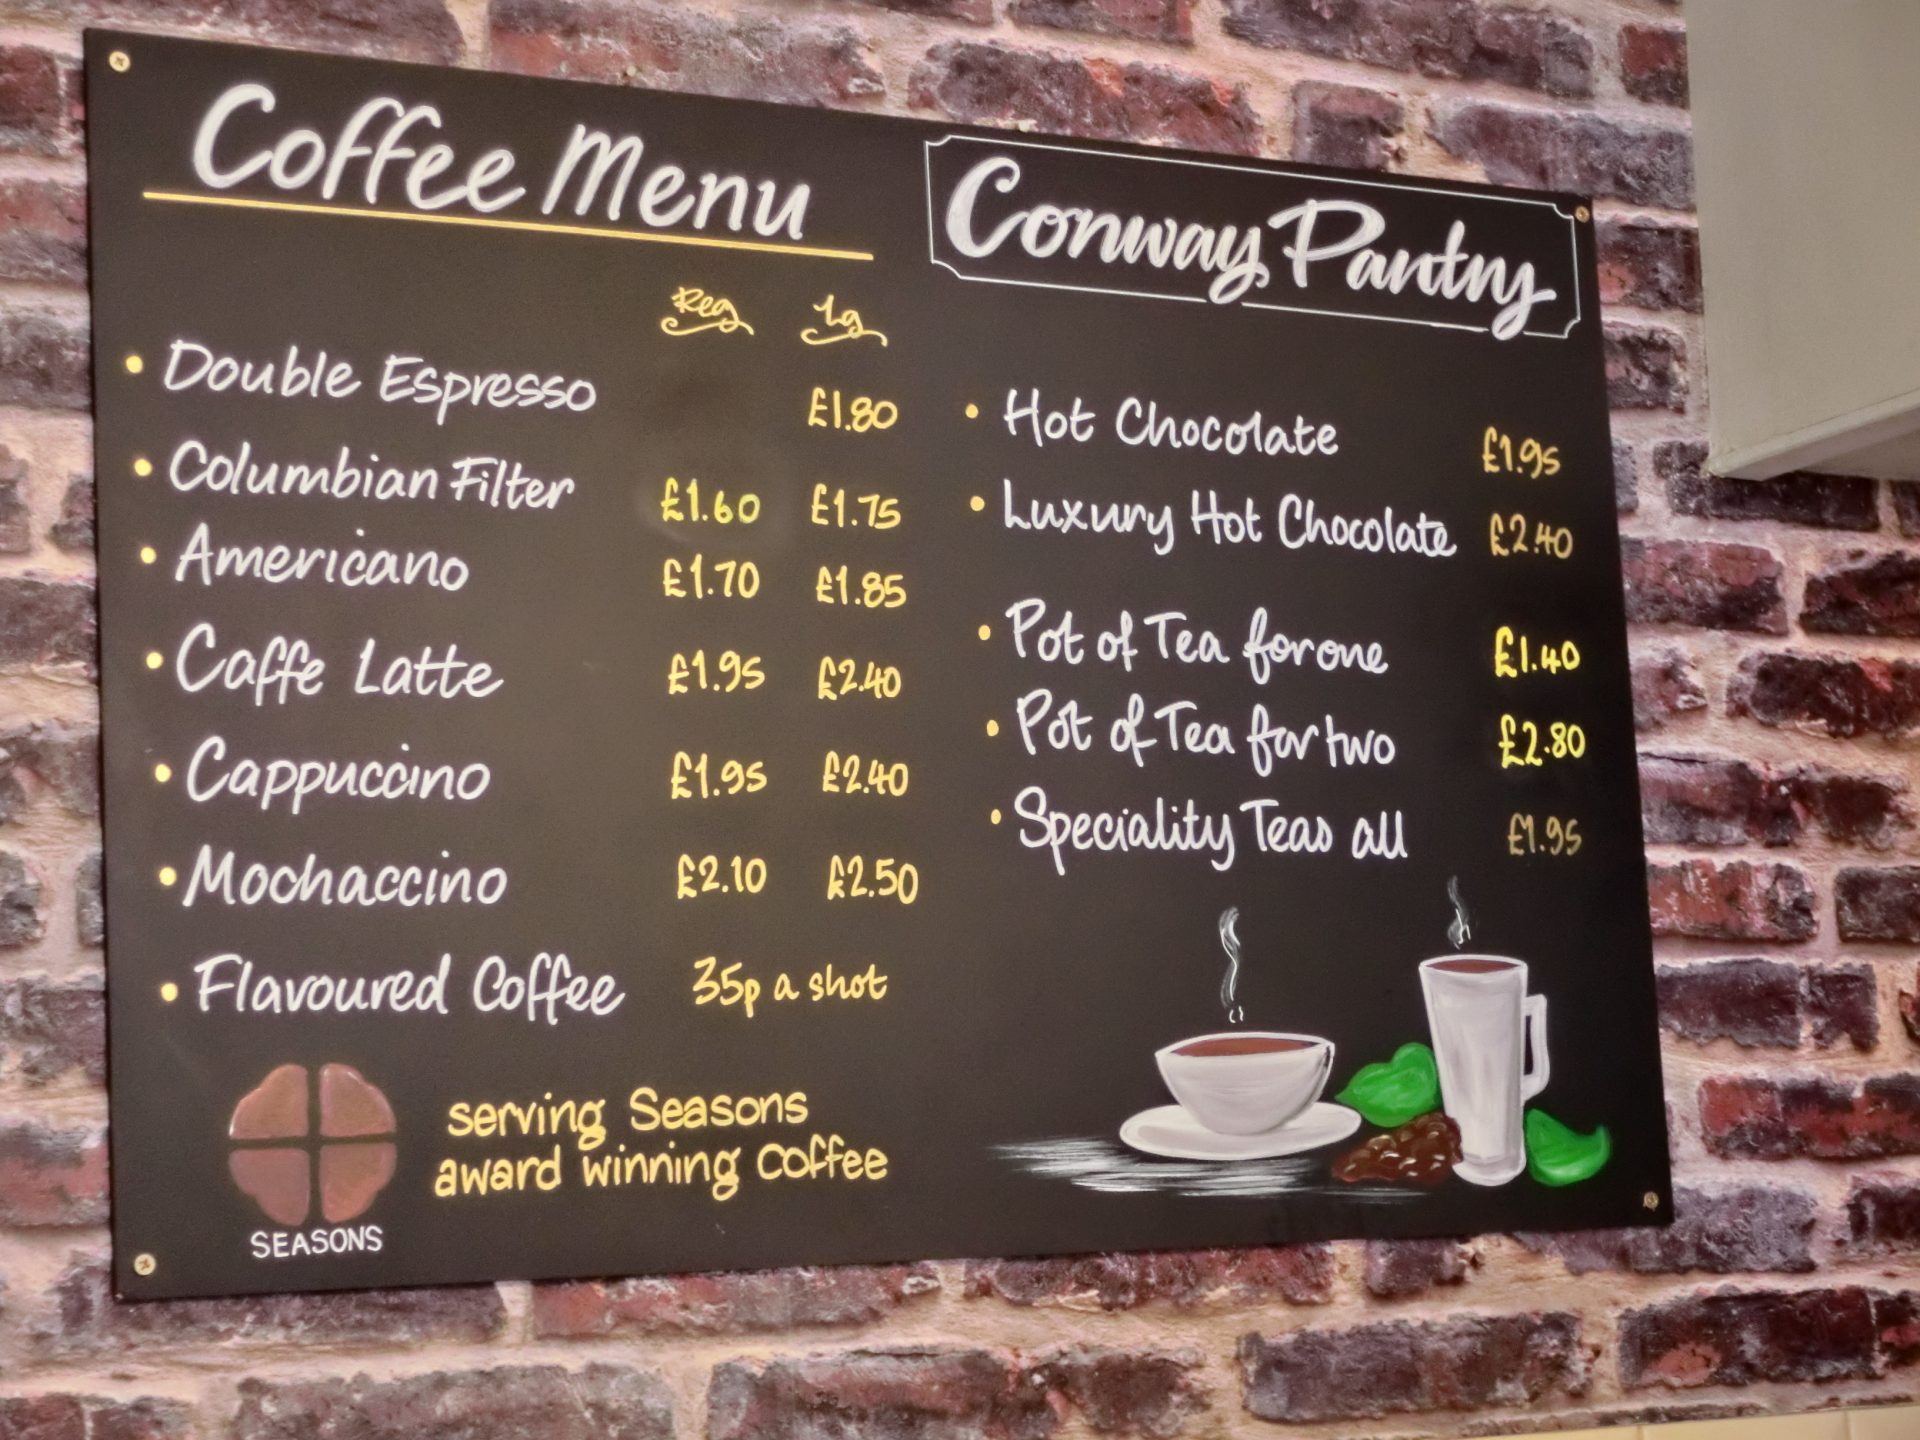 Coffee Menu
Reg Lg
• Double Espresso £1.80
• Columbian Filter £1.60 £1.75
• Americano £1.70 £1.85
• Caffe Latte £1.95 £2.40
• Cappuccino £1.95 £2.40
• Mochaccino £2.10 £2.50
• Flavoured Coffee 35p a shot
SEASONS
serving Seasons
award winning coffee
Conway Pantry
• Hot Chocolate £1.95
• Luxury Hot Chocolate £2.40
• Pot of Tea for one £1.40
• Pot of Tea for two £2.80
• Speciality Teas all £1.95